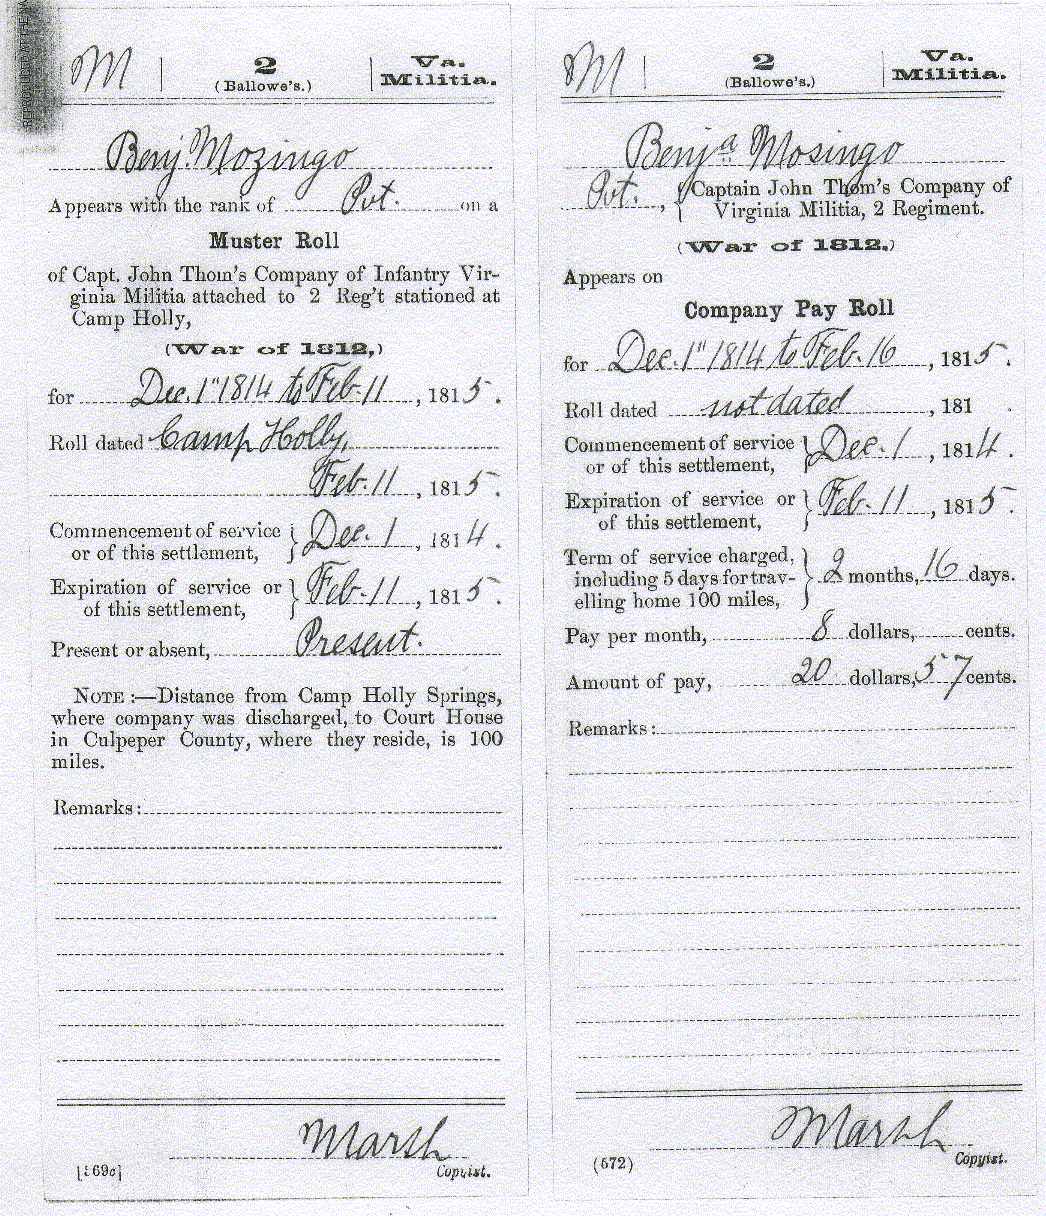 M | 2 | Va.
(Ballowe's.) Militia.
Benj. Mozingo
Appears with the rank of Pvt. on a
Muster Roll
of Capt. John Thom's Company of Infantry Vir-
ginia Militia attached to 2 Reg't stationed at
Camp Holly,
(War of 1812,)
for Dec. 1" 1814 to Feb. 11, 1815.
Roll dated Camp Holly,
Feb. 11, 1815.
Commencement of service
or of this settlement, } Dec. 1, 1814.
Expiration of service or
of this settlement, } Feb. 11, 1815.
Present or absent, Present.
NOTE:—Distance from Camp Holly Springs,
where company was discharged, to Court House
in Culpeper County, where they reside, is 100
miles.
Remarks:
Marsh
Copyist.
M | 2 | Va.
(Ballowe's.) Militia.
Benja Mosingo
Pvt., { Captain John Thom's Company of
Virginia Militia, 2 Regiment.
(War of 1812,)
Appears on
Company Pay Roll
for Dec. 1" 1814 to Feb. 16, 1815.
Roll dated not dated, 181 .
Commencement of service
or of this settlement, } Dec. 1, 1814.
Expiration of service or
of this settlement, } Feb. 11, 1815.
Term of service charged,
including 5 days for trav- } 2 months, 16 days.
elling home 100 miles,
Pay per month, 8 dollars, cents.
Amount of pay, 20 dollars, 57 cents.
Remarks:
Marsh
(572) Copyist.